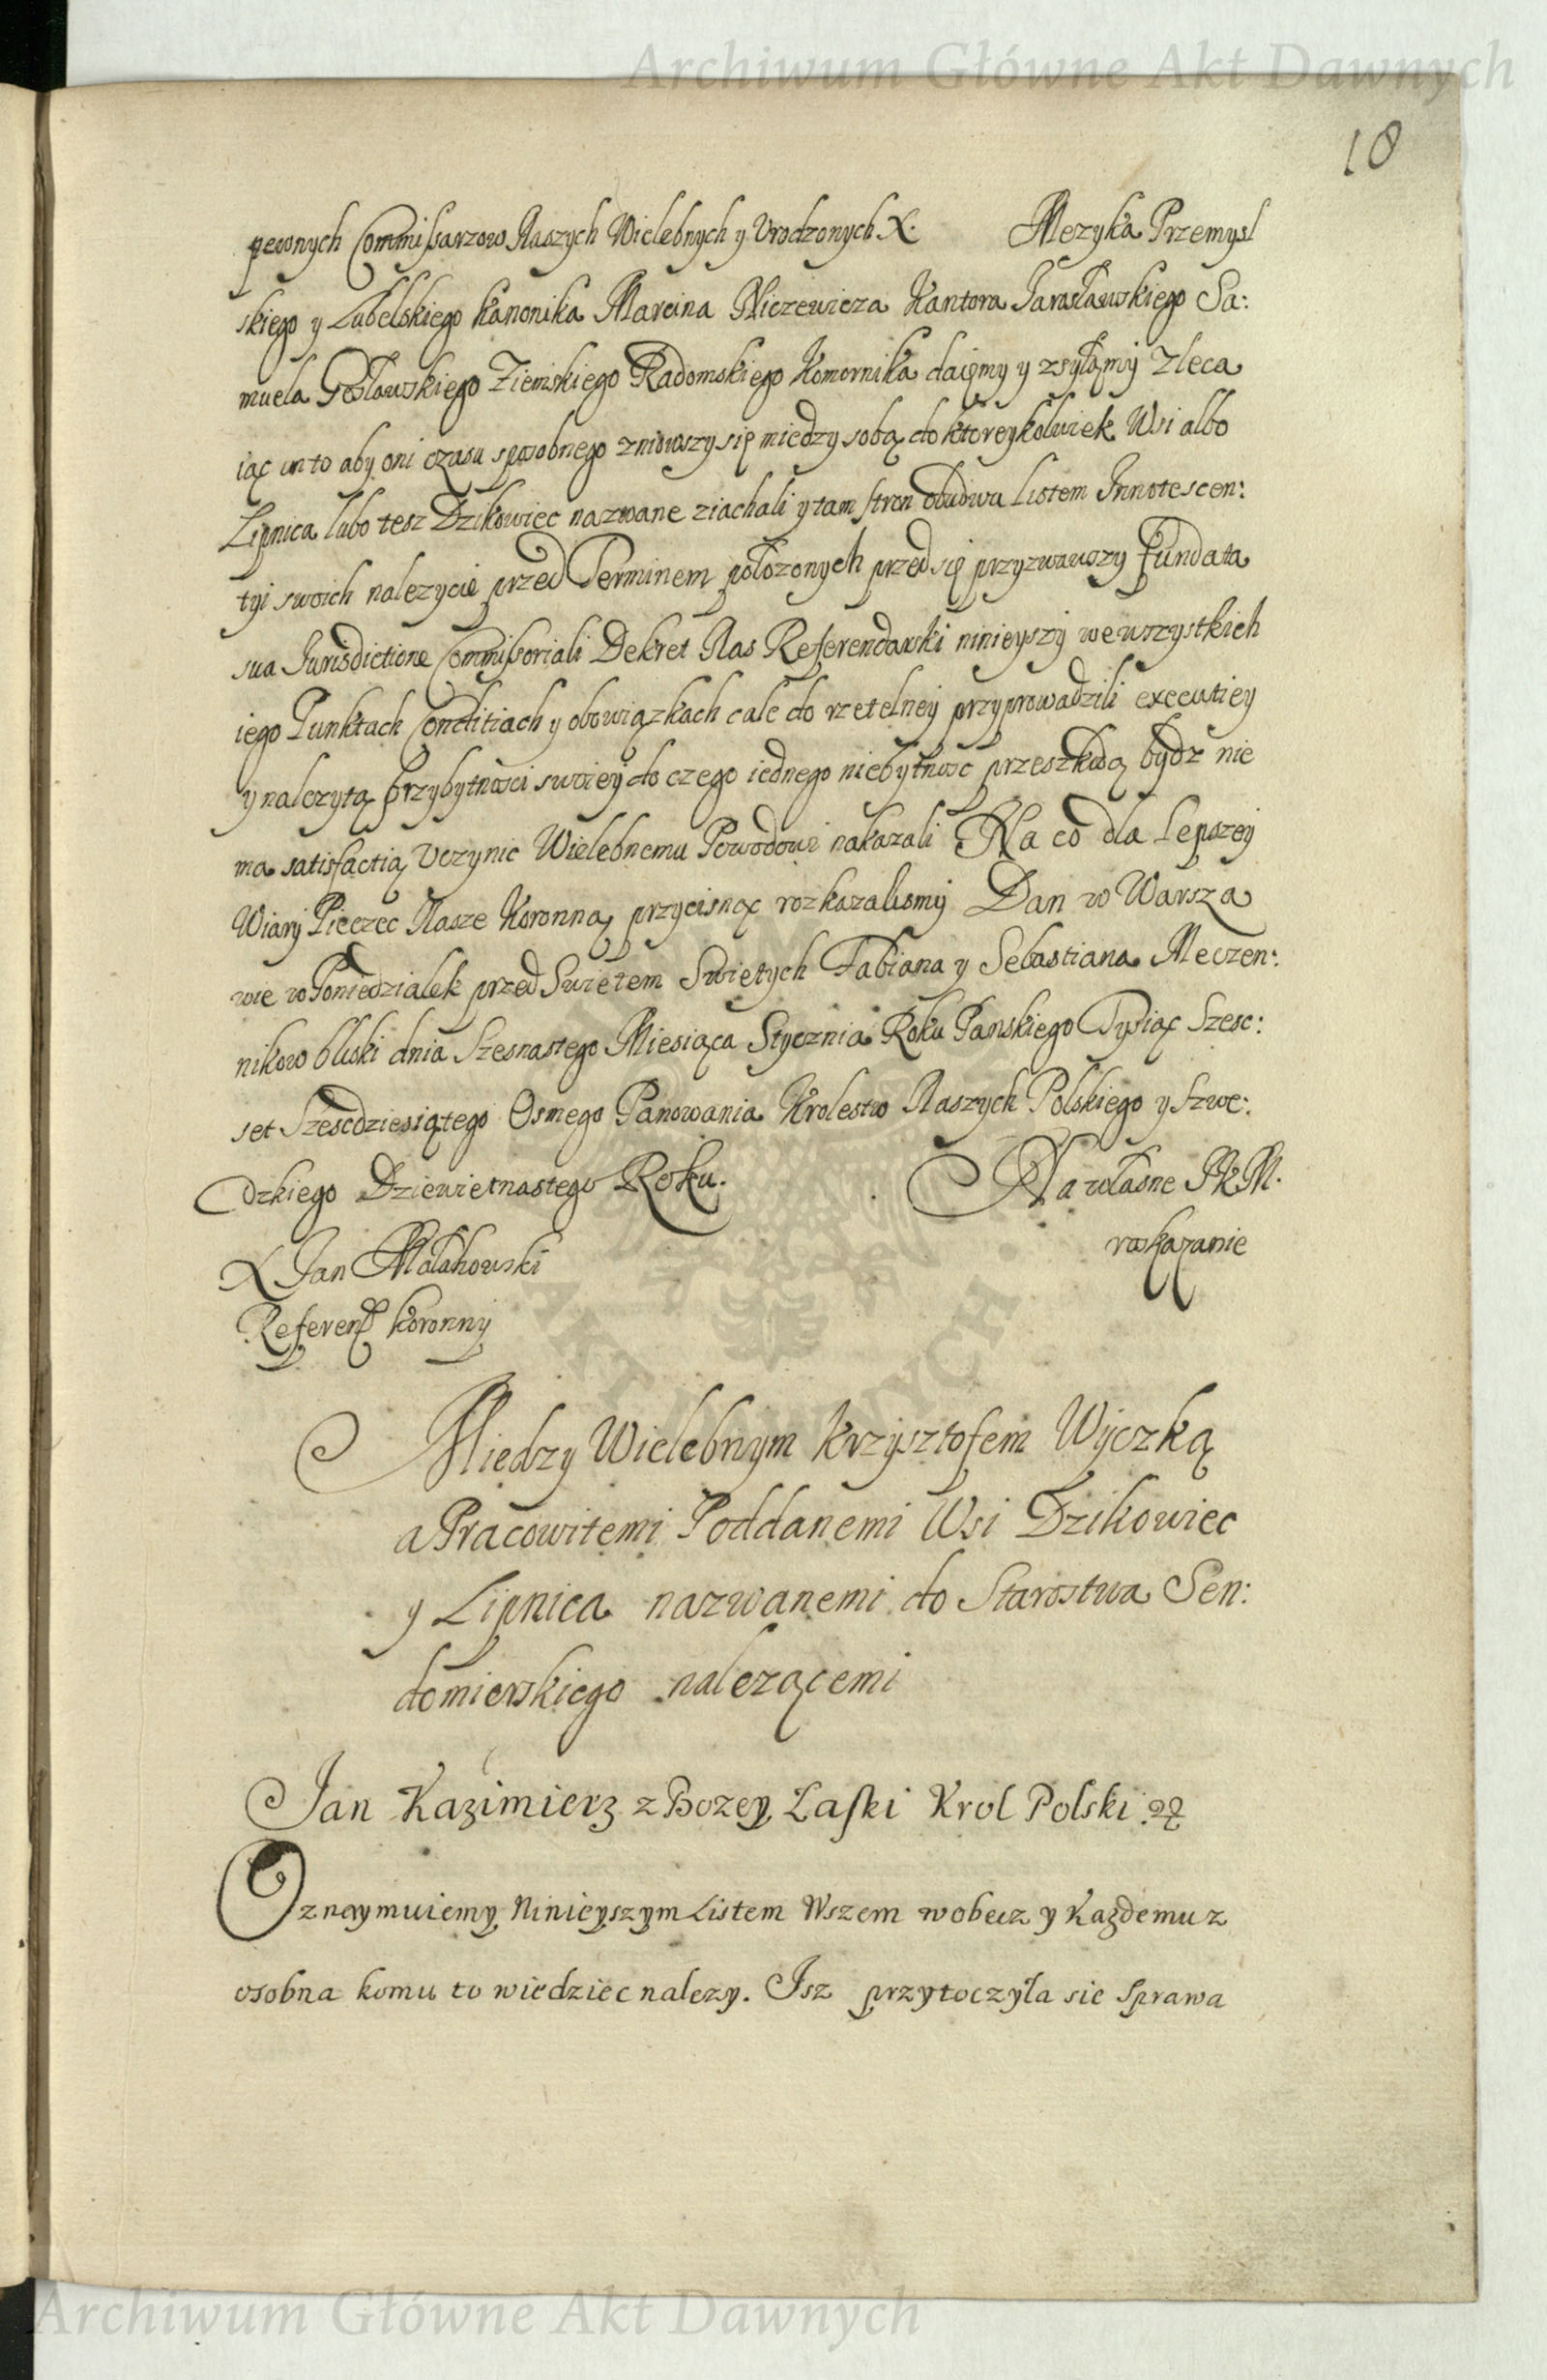 Archiwum Główne Akt Dawnych
18
pewnych Commissarzow Naszych Wielebnych y Urodzonych X. Mezyka Przemysl
skiego y Lubelskiego Kanonika Marcina Niczewicza Kantora Jarosławskiego Sa:
muela Gosławskiego Ziemskiego Radomskiego Komornika daięmy y zsyłąmy Zleca
iąc im to aby oni czasu sposobnego zniowszy się miedzy sobą do ktoreykolwiek Wsi albo
Lipnica lubo tesz Dzikowiec nazwane ziachali y tam stron obudwu Listem Innotescen:
tyi swoich nalezycie przed Terminem połozonych przed się przyzwawszy fundata
sua Jurisdictione Commissoriali Dekret Nas Referendarski ninieyszy we wszystkich
iego Punktach Conditiach y obowiązkach cale do rzetelney przyprowadzili executiey
y nalezytą przybytnosci swoiey do czego iednego niebytnosc przeszkodą bydz nie
ma satisfactią Uczynic Wielebnemu Powodowi nakazali Na co dla Lepszey
Wiary Pieczęc Nasze Koronną przycisnąc rozkazalismy Dan w Warsza
wie w Poniedzialek przed Swietem Swietych Fabiana y Sebastiana Meczen:
nikow bliski dnia Szesnastego Miesiąca Stycznia Roku Panskiego Tysiąc Szesc:
set Szescdziesiątego Osmego Panowania Krolestw Naszych Polskiego y Szwe:
dzkiego Dziewietnastego Roku. Na własne JKM.
roskazanie
X Jan Małahowski
Referend Koronny
Miedzy Wielebnym Krzysztofem Wyczką
a Pracowitemi Poddanemi Wsi Dzikowiec
y Lipnica nazwanemi do Starostwa Sen:
domierskiego nalezącemi
Jan Kazimierz z Bozey Łaski Krol Polski
Oznaymuiemy Ninieyszym Listem Wszem wobecz y Kazdemu z
osobna komu to wiedziec nalezy. Isz przytoczyła sie Sprawa
AKT DAWNYCH
Archiwum Główne Akt Dawnych